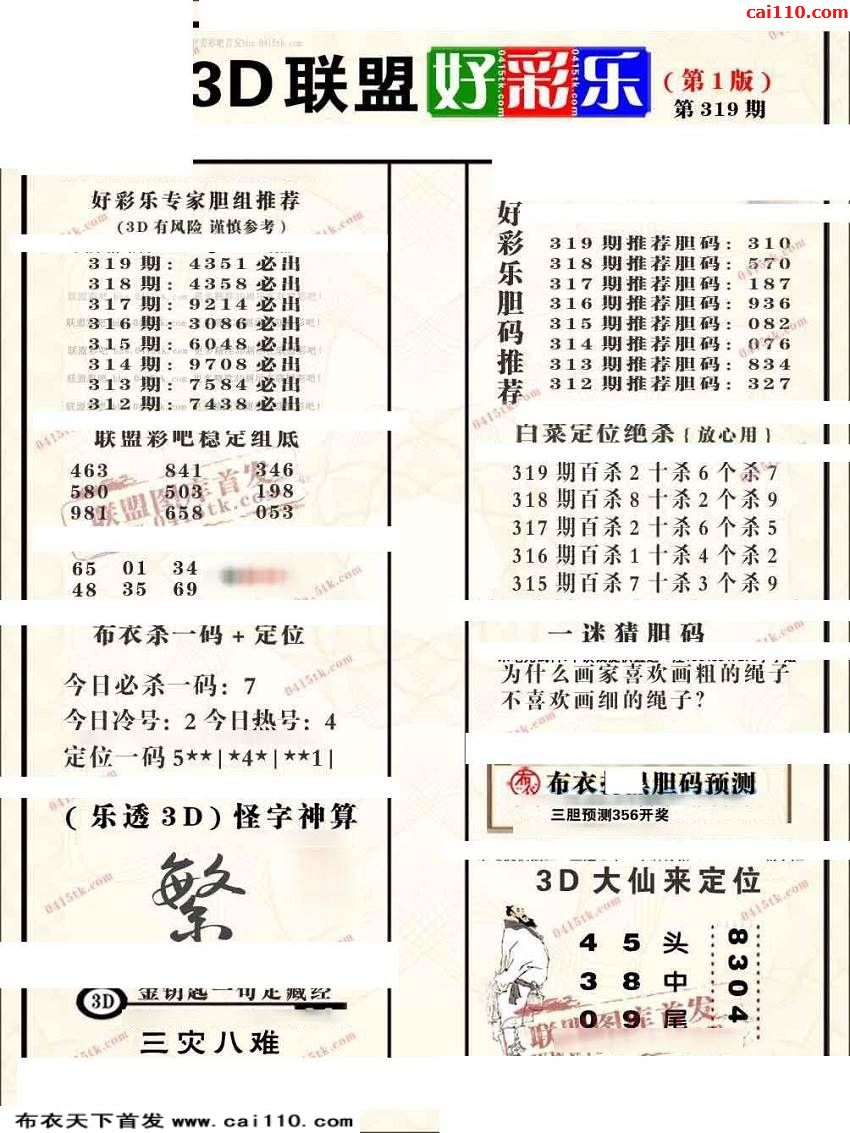 cai110.com
3D联盟好彩乐
(第1版)
第319期
好彩乐专家胆组推荐
(3D有风险 谨慎参考)
319期: 4351必出
318期: 4358必出
317期: 9214必出
316期: 3086必出
315期: 6048必出
314期: 9708必出
313期: 7584必出
312期: 7438必出
联盟彩吧稳定组底
463 841 346
580 503 198
981 658 053
65 01 34
48 35 69
布衣杀一码+定位
今日必杀一码: 7
今日冷号: 2 今日热号: 4
定位一码5**|*4*|**1|
(乐透3D)怪字神算
繁
3D 金钥匙一句定藏经
三灾八难
好彩乐胆码推荐
319期推荐胆码: 310
318期推荐胆码: 570
317期推荐胆码: 187
316期推荐胆码: 936
315期推荐胆码: 082
314期推荐胆码: 076
313期推荐胆码: 834
312期推荐胆码: 327
白菜定位绝杀{放心用}
319期百杀2十杀6个杀7
318期百杀8十杀2个杀9
317期百杀2十杀6个杀5
316期百杀1十杀4个杀2
315期百杀7十杀3个杀9
一迷猜胆码
为什么画家喜欢画粗的绳子
不喜欢画细的绳子?
布衣 胆码预测
三胆预测356开奖
3D大仙来定位
4 5头
3 8中
0 9尾
8304
联盟图库首发
0415tk.com
布衣天下首发www.cai110.com